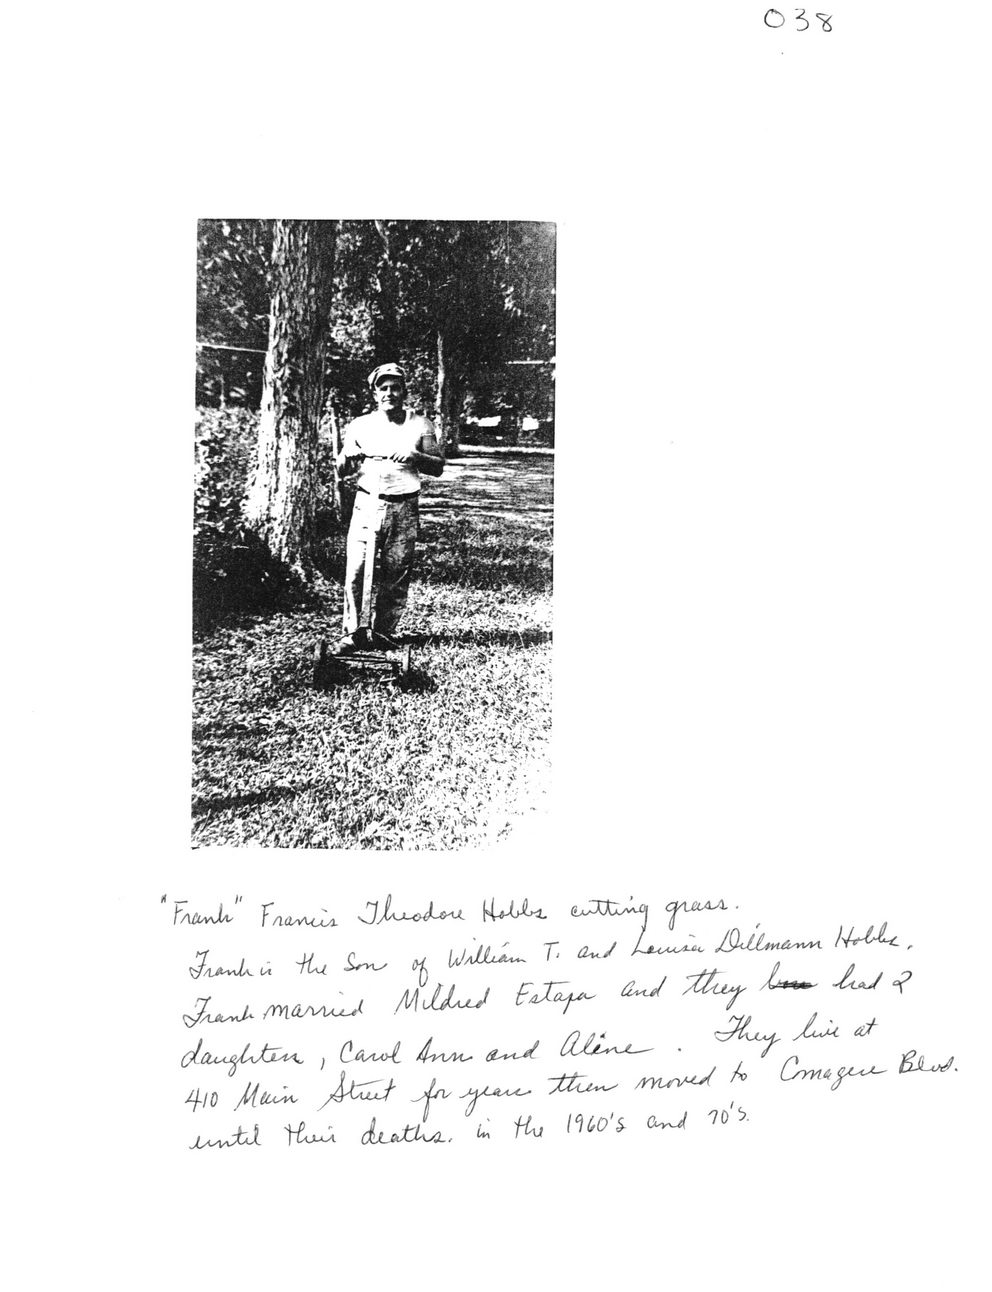 038
"Frank" Francis Theodore Hobbs cutting grass.
Frank is the Son of William T. and Louisa Dillmann Hobbs.
Frank married Mildred Estapa and they had 2
daughters, Carol Ann and Aline. They live at
410 Main Street for years then moved to Cmagere Blvd.
until their deaths. in the 1960's and 70's.